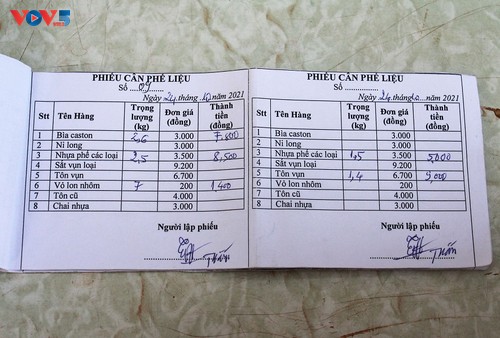 VOV5
PHIẾU CÂN PHẾ LIỆU
Số ....09....
Ngày 24 tháng 10 năm 2021
Stt Tên Hàng Trọng lượng (kg) Đơn giá (đồng) Thành tiền (đồng)
1 Bìa caston 2,6 3.000 7.800
2 Ni long 3.000
3 Nhựa phế các loại 2,5 3.500 8,500
4 Sắt vụn loại 9.200
5 Tôn vụn 6.700
6 Vỏ lon nhôm 7 200 1.400
7 Tôn cũ 4.000
8 Chai nhựa 3.000
Người lập phiếu
PHIẾU CÂN PHẾ LIỆU
Số
Ngày 24 tháng 10 năm 2021
Stt Tên Hàng Trọng lượng (kg) Đơn giá (đồng) Thành tiền (đồng)
1 Bìa caston 3.000
2 Ni long 3.000
3 Nhựa phế các loại 1,5 3.500 5,000
4 Sắt vụn loại 9.200
5 Tôn vụn 1,4 6.700 9,000
6 Vỏ lon nhôm 200
7 Tôn cũ 4.000
8 Chai nhựa 3.000
Người lập phiếu